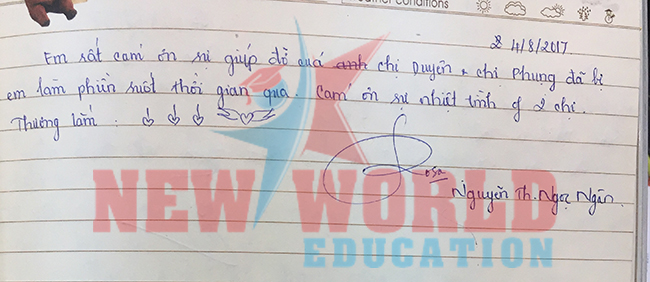 Weather conditions
4/8/2017
Em rất cảm ơn sự giúp đỡ quá anh chị Duyên + chị Phụng đã bị
em làm phiền suốt thời gian qua. Cảm ơn sự nhiệt tình of 2 chị.
Thương lắm :
Nguyễn Th. Ngọc Ngân.
NEW WORLD
EDUCATION